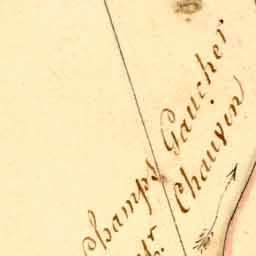 Champs Gaucher
Mr. Chauvin